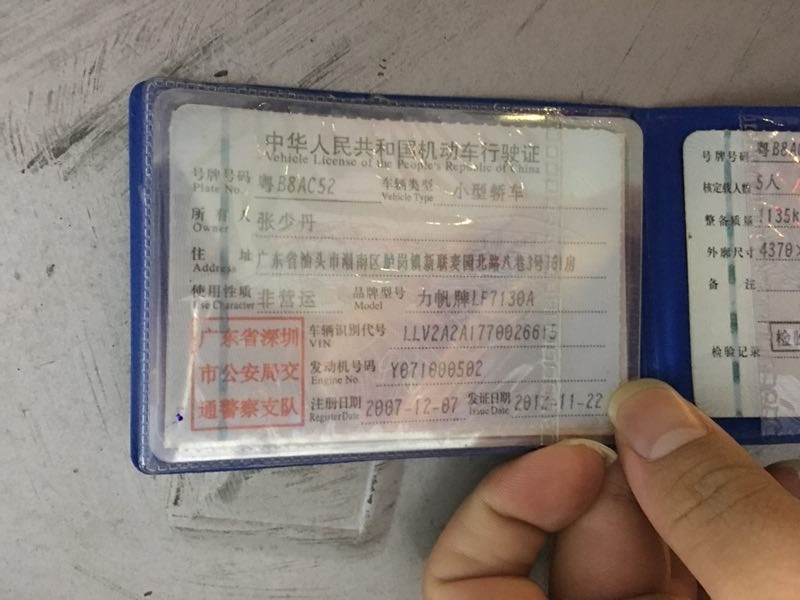 中华人民共和国机动车行驶证
Vehicle License of the People's Republic of China
号牌号码 粤B8AC52 车辆类型 小型轿车
Plate No. Vehicle Type
所有人 张少丹
Owner
住址 广东省汕头市潮南区胪岗镇新联麦园北路八巷3号701房
Address
使用性质 非营运 品牌型号 力帆牌LF7130A
Use Character Model
车辆识别代号 LLV2A2A1770026615
VIN
发动机号码 Y071000502
Engine No.
注册日期 2007-12-07 发证日期 2012-11-22
Register Date Issue Date
广东省深圳
市公安局交
通警察支队
号牌号码 粤B8AC
核定载人数 5人
整备质量 1135k
外廓尺寸 4370×
备注
检验记录 检